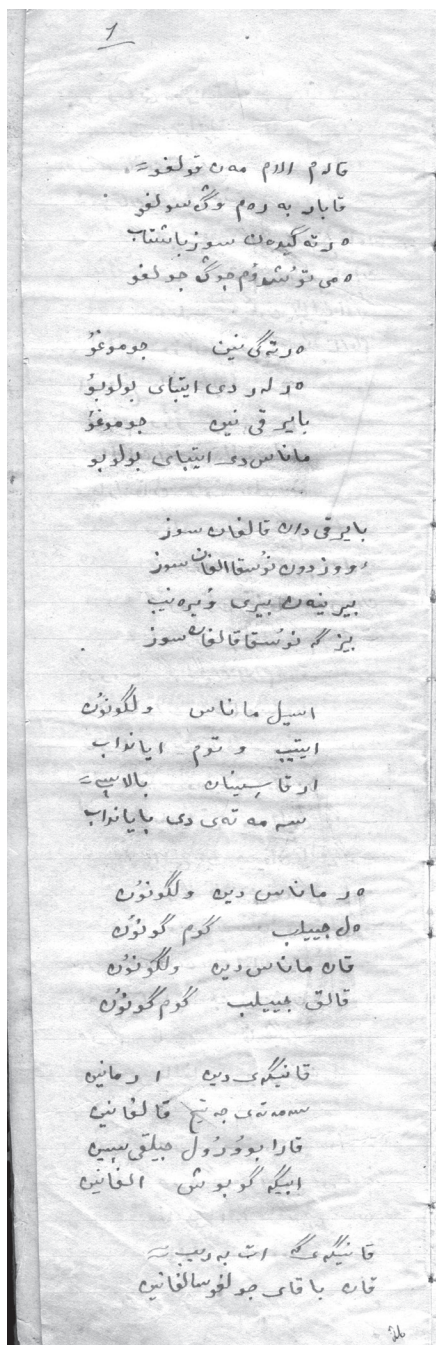 1
قالەم الام مەن قولغو =
قابار بەرەم وگ سولغو
ەرتەگیدەن سوز باشتاب
ەمی تۇشدۇم جوگ جولغو
ەرتەگی نین جوموغۇ
ەرلەردی ایتبای بولوبۇ
بایرقی نین جوموغۇ
ماناس دی ایتبای بولوبو
بایرقی دان قالغان سوز
نۇسقا الغان سوز
بیرینەن بیری ۇیرەنیب
بیزگە نۇسقا قالغان سوز
اسیل ماناس ولگونۇن
ایتیب وتوم ایانداب
ارقاسینان بالاسی =
سەمەتەی دی بایانداب
ەر ماناس دین ولگونۇن
ەل جییلب گوم گونۇن
قان ماناس دین ولگونۇن
قالق جییلب گوم گونۇن
قانیگەی دین ارمانین
سەمەتەی جەتیم قالغانین
قارا بوۇرۇل جیلقی سین
ابیگە گوبوش الغانین
قانیگەی گە ات بەریب =
قان باقای جولغو سالغانین
26